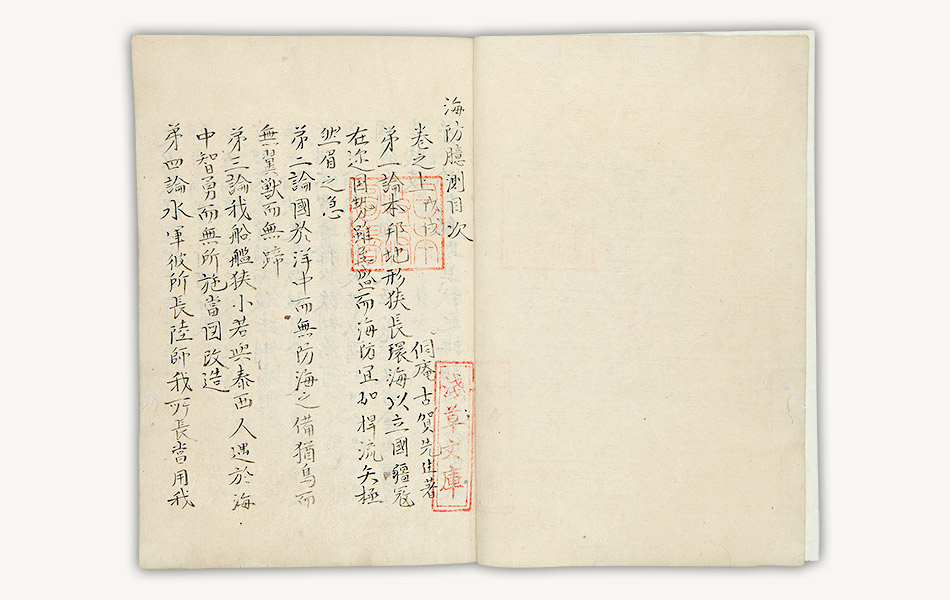 海防臆測目次
卷之上 戊戌 侗庵古賀先生著
第一論本邦地形狹長環海以立國疆冦
在迩 雖 而海防宜如捍流矢拯
然眉之急
第二論國於洋中而無防海之備猶鳥而
無翼獸而無蹄
第三論我船艦狹小若與泰西人遇於海
中智勇而無所施當图改造
第四論水軍彼所長陸師我所長當用我
淺草文庫